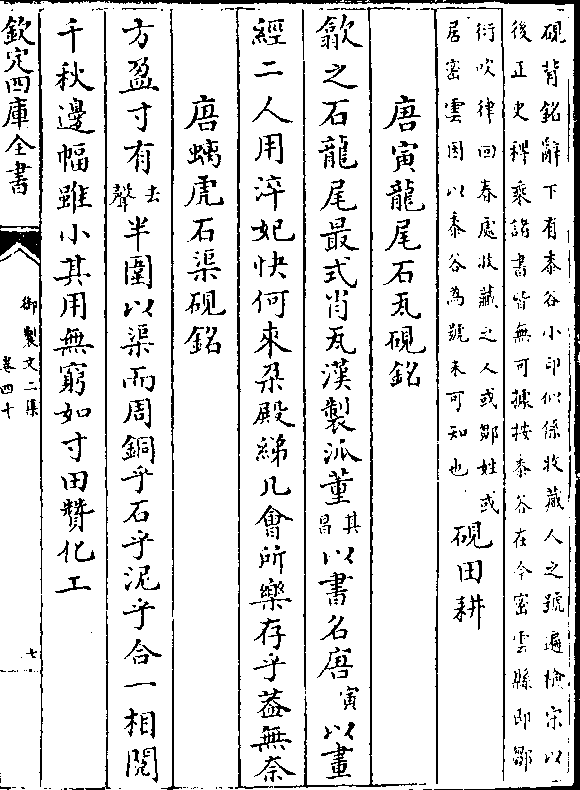 硯背銘辭下有泰谷小印似係收藏人之號遍檢宋以
後正史稗乘諸書皆無可據按泰谷在今密雲縣即鄒
衍吹律回春處收藏之人或鄒姓或
居密雲因以泰谷為號未可知也
硯田耕
唐寅龍尾石瓦硯銘
歙之石龍尾最式肖瓦漢製派董其昌以書名唐寅以畫
經二人用淬妃快何來朶殿綈几會所樂存乎葢無奈
唐螭虎石渠硯銘
方盈寸有去聲半圍以渠而周銅乎石乎泥乎合一相閱
千秋邊幅雖小其用無窮如寸田贊化工
欽定四庫全書
御製文二集
卷四十
七